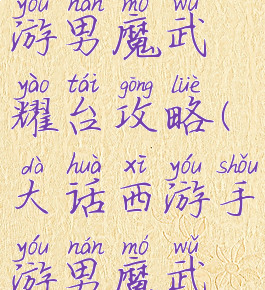 yóu nán mó wǔ
游男魔武
yào tái gōng lüè
耀台攻略(
dà huà xī yóu shǒu
大话西游手
yóu nán mó wǔ
游男魔武